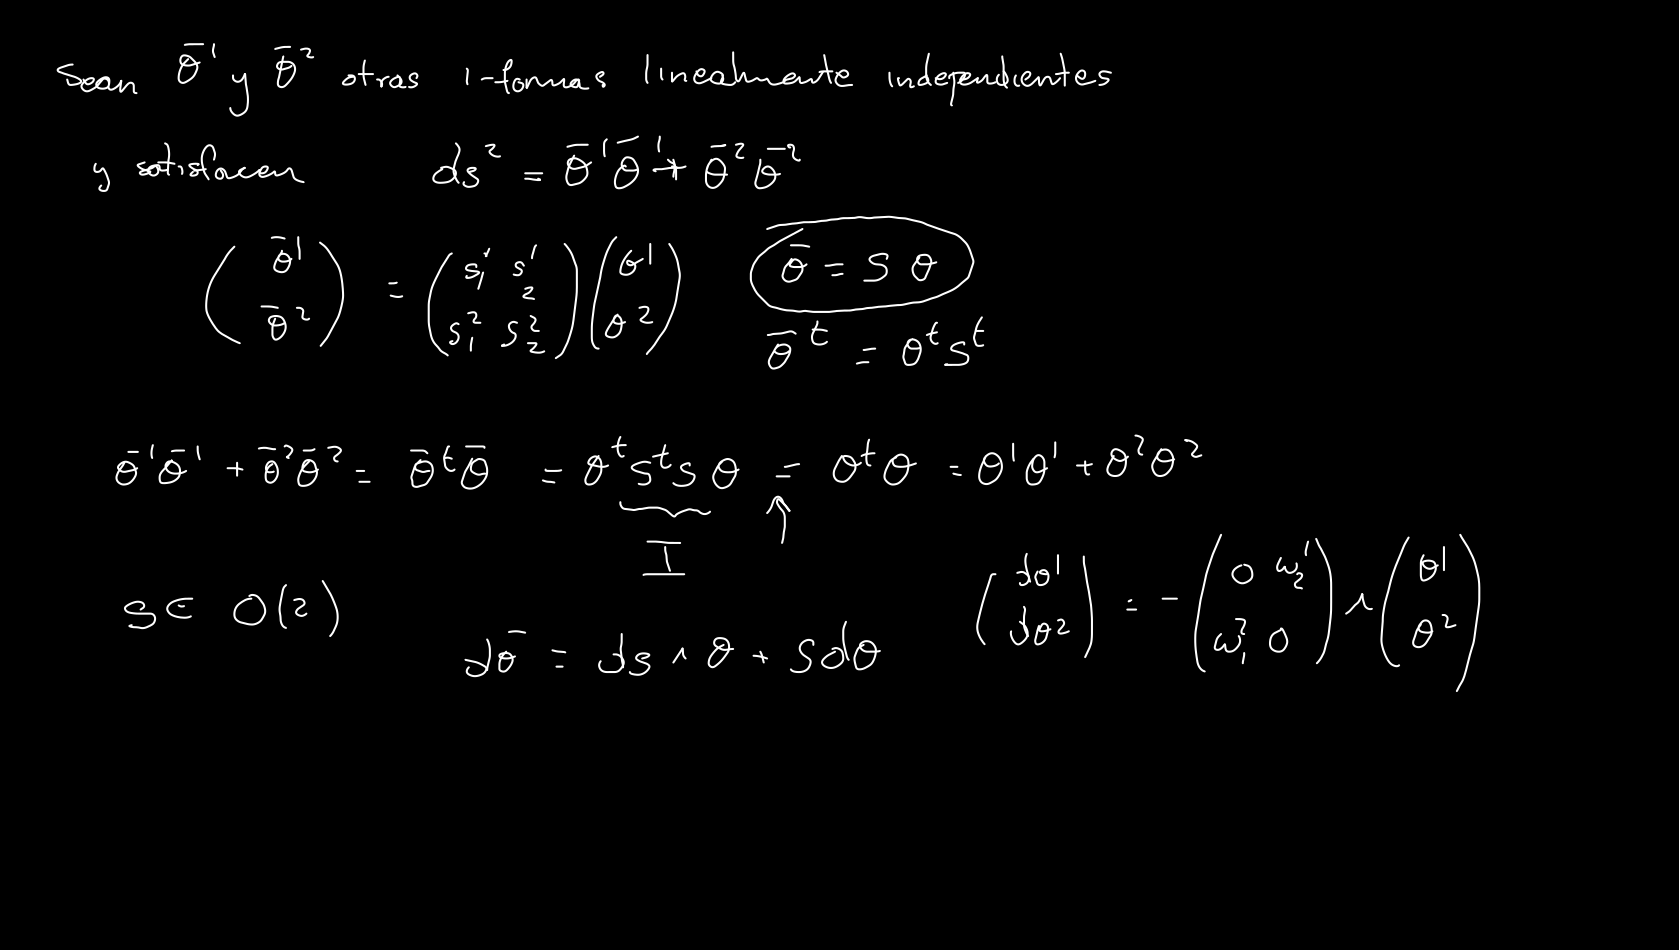 Sean θ̄¹ y θ̄² otras 1-formas linealmente independientes
y satisfacen ds² = θ̄¹θ̄¹ + θ̄²θ̄²
(θ̄¹ ; θ̄²) = (s¹₁ s¹₂ ; s²₁ s²₂)(θ¹ ; θ²) θ̄ = S θ
θ̄ᵗ = θᵗSᵗ
θ̄¹θ̄¹ + θ̄²θ̄² = θ̄ᵗθ̄ = θᵗSᵗSθ = θᵗθ = θ¹θ¹ + θ²θ²
I ↑
S ∈ O(2)
(dθ¹ ; dθ²) = -(0 ω¹₂ ; ω²₁ 0) ∧ (θ¹ ; θ²)
dθ̄ = ds ∧ θ + Sdθ